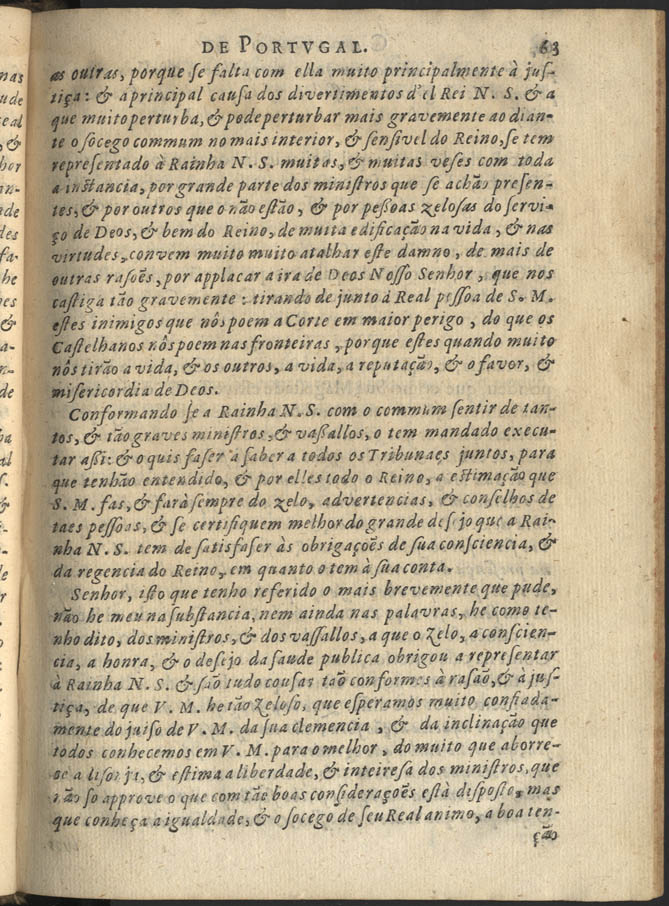 DE PORTVGAL. 63
as outras, porque se falta com ella muito principalmente à jus-
tiça: & a principal causa dos divertimentos d'el Rei N. S. & a
que muito perturba, & pode perturbar mais gravemente ao dian-
te o socego commum no mais interior, & sensivel do Reino, se tem
representado à Rainha N. S. muitas, & muitas veses com toda
a instancia, por grande parte dos ministros que se achão presen-
tes, & por outros que o não estão, & por peßoas zelosas do servi-
ço de Deos, & bem do Reino, de muita edificação na vida, & nas
virtudes, convem muito muito atalhar este damno, de mais de
outras rasoẽs, por applacar a ira de Deos Nosso Senhor, que nos
castiga tão gravemente: tirando de junto à Real pessoa de S. M.
estes inimigos que nôs poem a Corte em maior perigo, do que os
Castelhanos nôs poem nas fronteiras, porque estes quando muito
nôs tirão a vida, & os outros, a vida, a reputação, & o favor, &
misericordia de Deos.
Conformando se a Rainha N. S. com o commum sentir de tan-
tos, & tão graves ministros, & vaßallos, o tem mandado execu-
tar aßi: & o quis faser a saber a todos os Tribunaes juntos, para
que tenhão entendido, & por elles todo o Reino, a estimação que
S. M. fas, & farà sempre do zelo, advertencias, & conselhos de
taes pessoas, & se certifiquem melhor do grande desejo que a Rai-
nha N. S. tem de satisfaser às obrigaçoẽs de sua consciencia, &
da regencia do Reino, em quanto o tem à sua conta.
Senhor, isto que tenho referido o mais brevemente que pude,
não he meu na substancia, nem ainda nas palavras, he como te-
nho dito, dos ministros, & dos vassallos, a que o zelo, a conscien-
cia, a honra, & o desejo da saude publica obrigou a representar
à Rainha N. S. & são tudo cousas tão conformes à rasão, & à jus-
tiça, de que V. M. he tão zeloso, que esperamos muito confiada-
mente do juiso de V. M. da sua clemencia, & da inclinação que
todos conhecemos em V. M. para o melhor, do muito que aborre-
ce a lisonja, & estima a liberdade, & inteiresa dos ministros, que
não so approve o que com tão boas consideraçoẽs està disposto, mas
que conheça a igualdade, & o socego de seu Real animo, a boa ten-
ção